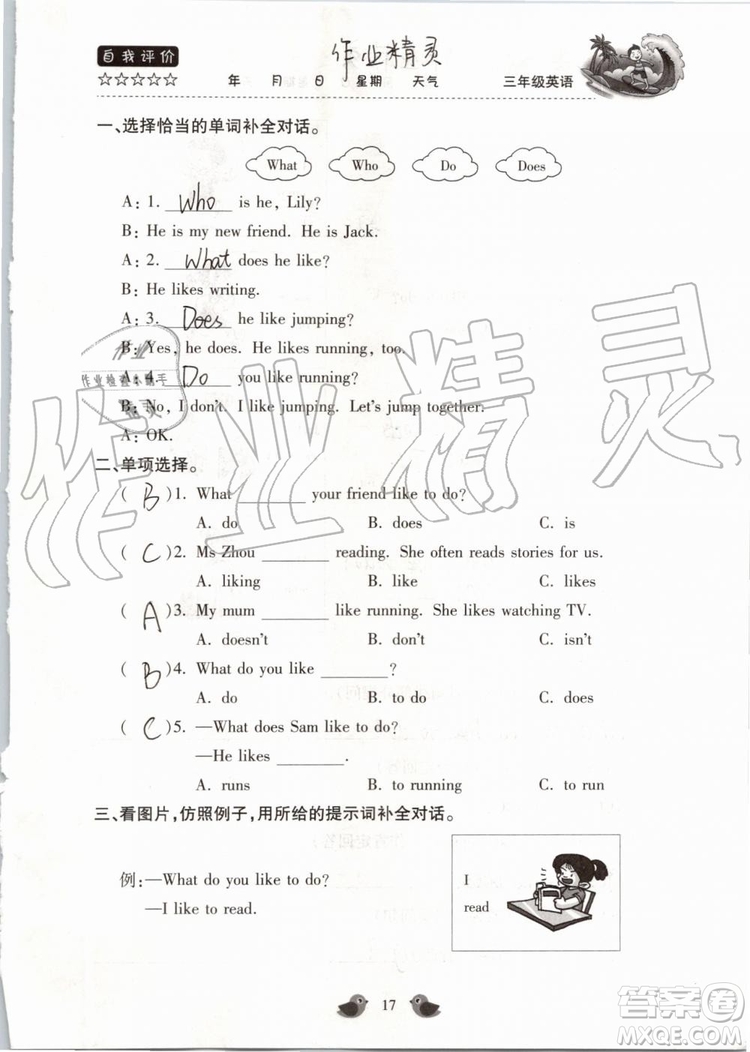 自我评价
作业精灵
☆☆☆☆☆ 年 月 日 星期 天气 三年级英语
一、选择恰当的单词补全对话。
What Who Do Does
A: 1. Who is he, Lily?
B: He is my new friend. He is Jack.
A: 2. What does he like?
B: He likes writing.
A: 3. Does he like jumping?
B: Yes, he does. He likes running, too.
A: 4. Do you like running?
B: No, I don't. I like jumping. Let's jump together.
A: OK.
二、单项选择。
( B )1. What ______ your friend like to do?
A. do B. does C. is
( C )2. Ms Zhou ______ reading. She often reads stories for us.
A. liking B. like C. likes
( A )3. My mum ______ like running. She likes watching TV.
A. doesn't B. don't C. isn't
( B )4. What do you like ______?
A. do B. to do C. does
( C )5. —What does Sam like to do?
—He likes ______.
A. runs B. to running C. to run
三、看图片,仿照例子,用所给的提示词补全对话。
例:—What do you like to do?
—I like to read.
I
read
17
作业精灵
作业
精灵
答案圈
MXQE.COM